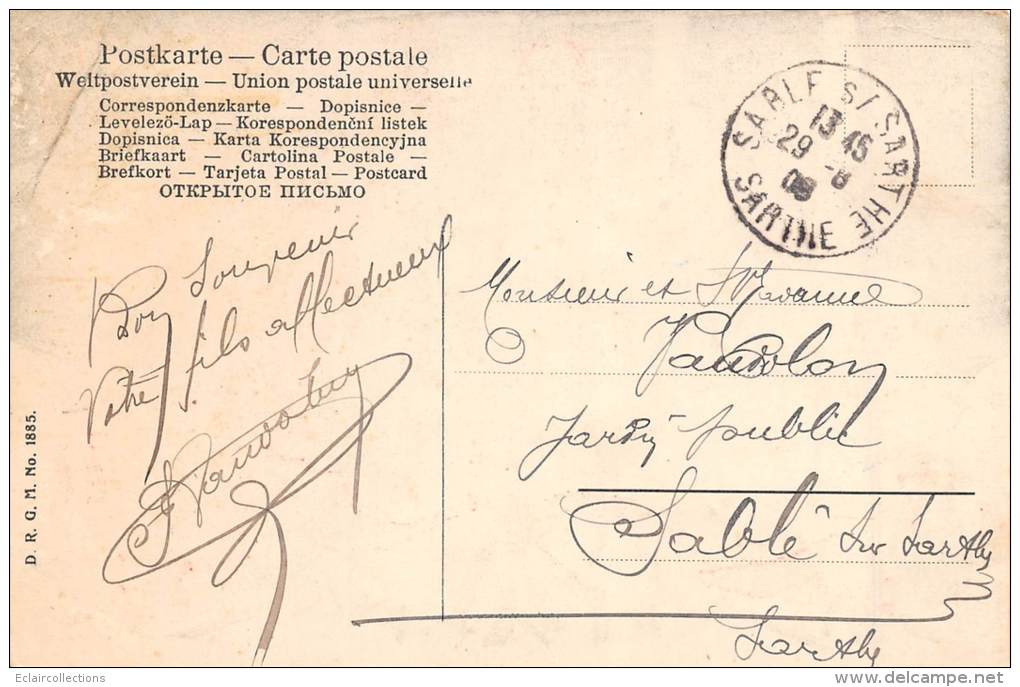 Postkarte — Carte postale
Weltpostverein — Union postale universelle
Correspondenzkarte — Dopisnice —
Levelező-Lap — Korespondenční listek
Dopisnica — Karta Korespondencyjna
Briefkaart — Cartolina Postale —
Brefkort — Tarjeta Postal — Postcard
ОТКРЫТОЕ ПИСЬМО
SABLE S/ SARTHE
13 45
29 -8
SARTHE
Bon Souvenir
Votre fils affectueux
Monsieur et Madame
Jardin public
Sablé sur Sarthe
Sarthe
D. R. G. M. No. 1885.
Eclaircollections
delcampe.net